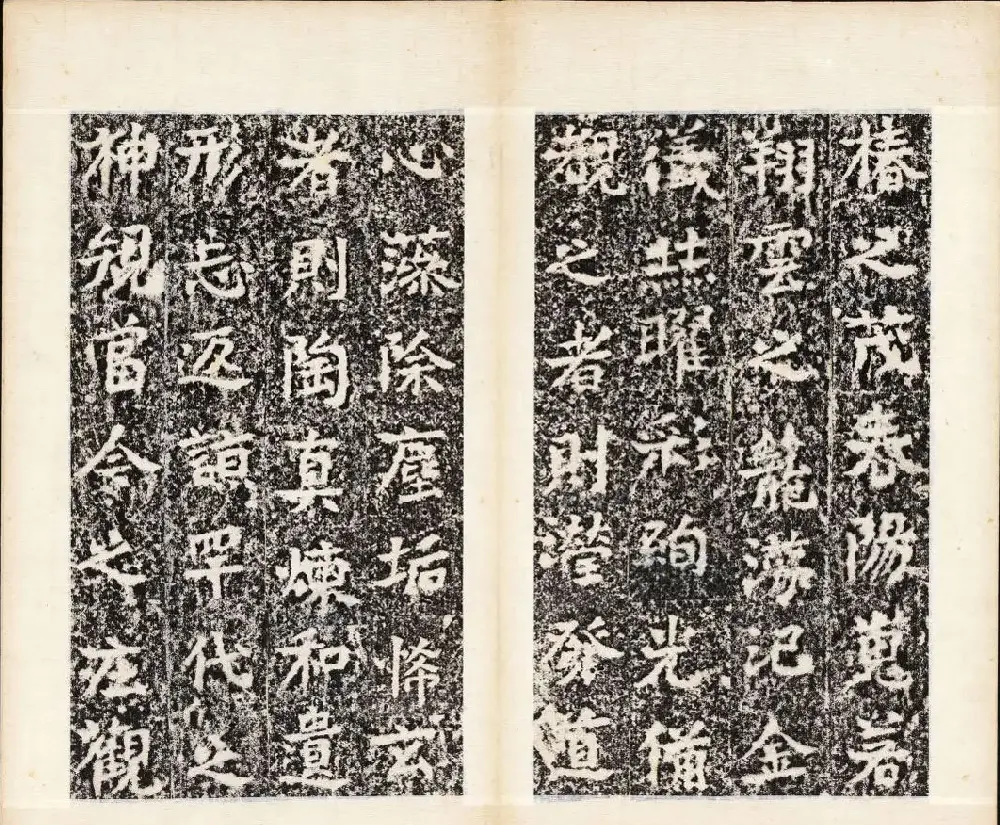 椿之茂春陽若
翔雲之龍游汜金
儀曜彩絢光備
覩之者則瀅發道
心藻除塵垢悕玄
者則陶真煉和遺
形忘返韻罕代之
神規當今之庄觀